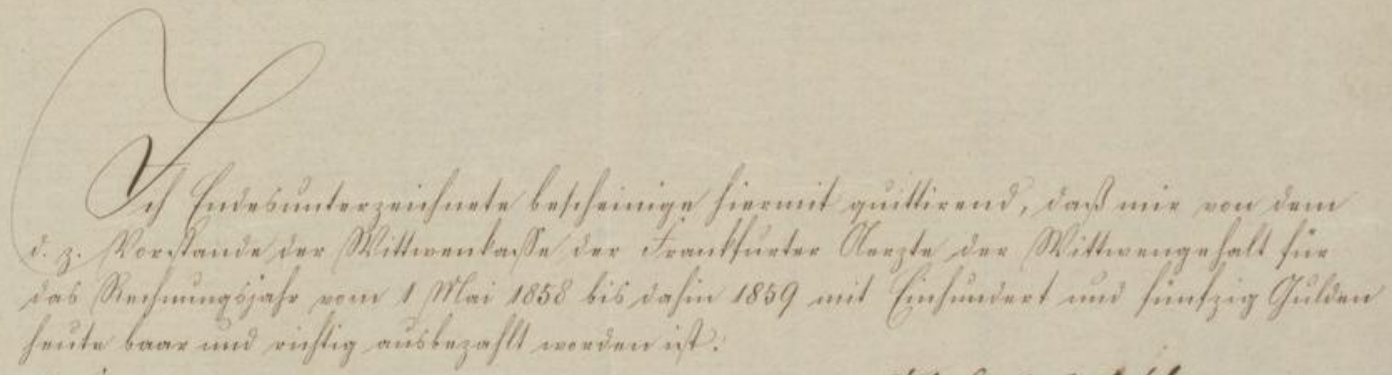 Ich Endesunterzeichnete bescheinige hiermit quittirend, daß mir von dem
d. z. Vorstande der Wittwenkasse der Frankfurter Aerzte der Wittwengehalt für
das Rechnungsjahr vom 1 Mai 1858 bis dahin 1859 mit Einhundert und fünfzig Gulden
heute baar und richtig ausbezahlt worden ist.